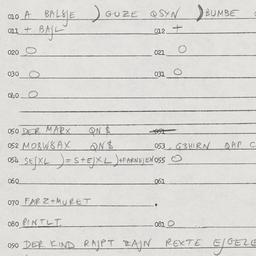 010 A BALSJE ) GUZE QSYN ) BUMBE
011 + BAJL 012 +
020 O 021 O
030 O 031 O
040 O
050 DER MARX QN$
052 MOBWBAX QN$ 053 GBHIRN QAP
054 SEJXL ) = S+EJXL ) +FARNEJEN 055 O
060 061
070 FARZ+MURET
080 PINTLT 081 O
090 DER KIND RAJPT ZAJN REXTE EJGELE